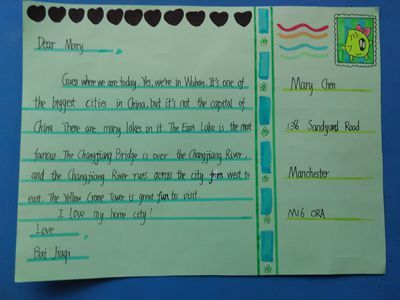 Dear Mary
,
Guess where we are today. Yes, we're in Wuhan. It's one of
the biggest cities in China, but it's not the capital of
China. There are many lakes in it. The East Lake is the most
famous. The Changjiang Bridge is over the Changjiang River,
and the Changjiang River runs across the city from west to
east. The Yellow Crane Tower is great fun to visit.
I love my home city!
Love
,
Bai Jiaqi
Mary Chen
138 Sandyard Road
Manchester
M16 0RA